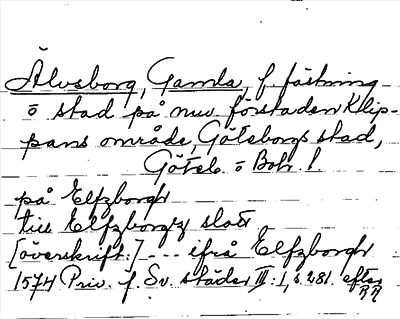 Älvsborg, Gamla, f. fästning
o stad på nuv. förstaden Klip-
pans område, Göteborgs stad,
Göteb. o Boh. l.
på Elfzborgh
till Elfzborgz slott
[överskrift:] --- ifrå Elfzborgh
1574 Priv. f. Sv. städer III: 1, s. 281. efter